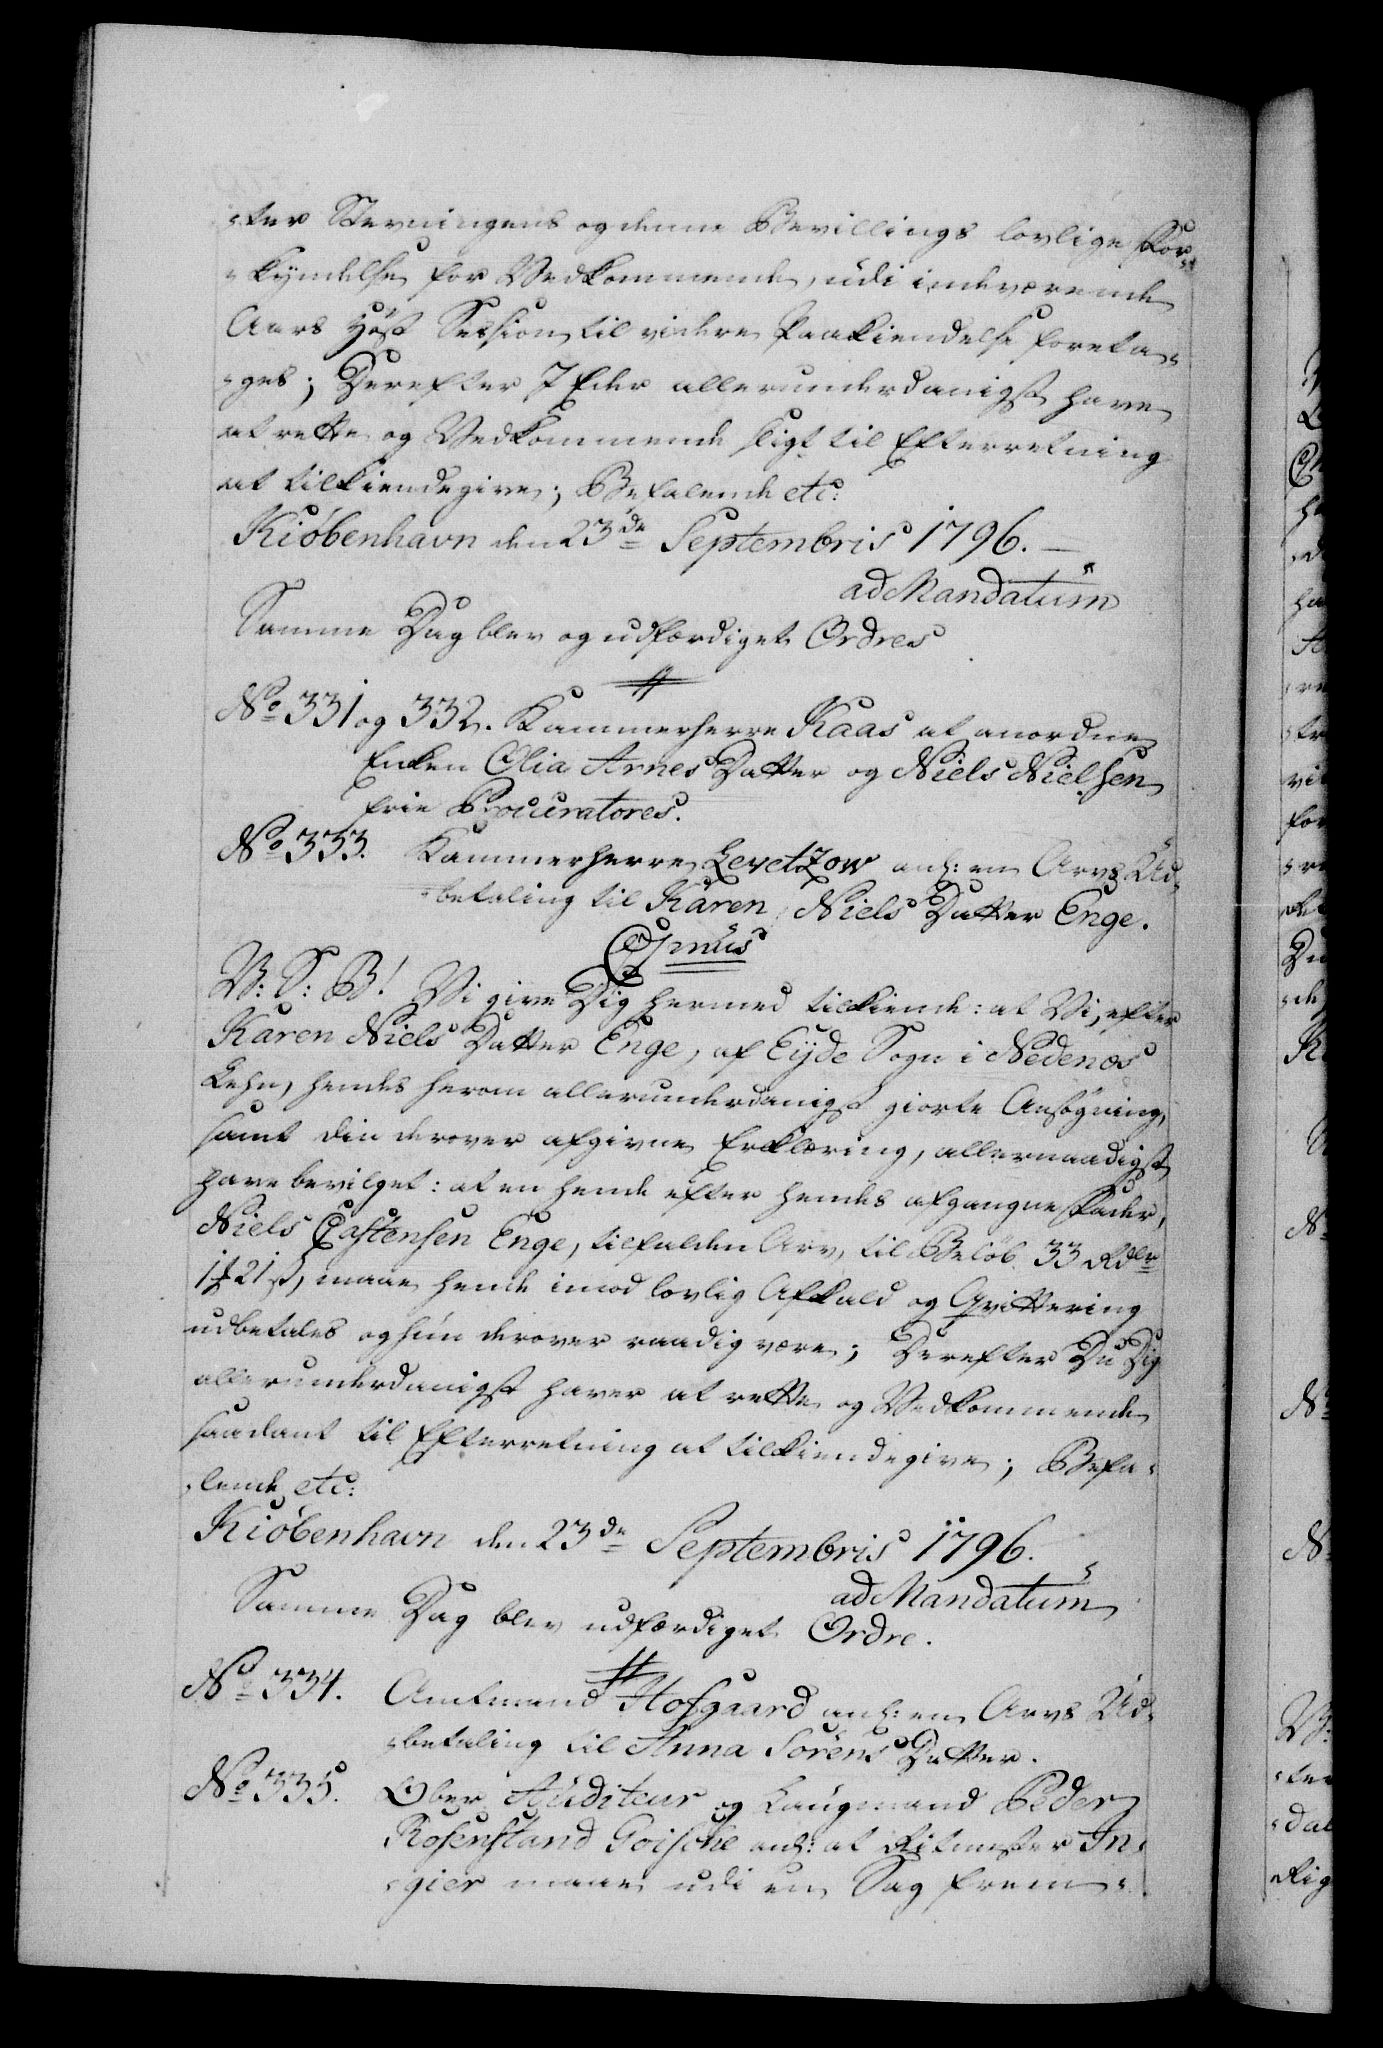 -ter Stevningens og denne Bevillings lovlige For-
-kyndelse for Vedkommende, udi indeværende
Aars Høst Session til videre Paakiendelse foreta-
-ges; Derefter I Eder allerunderdanigst have
at rette og Vedkommende sligt til Efterretning
at tilkiendegive; Befalende etc:
Kiøbenhavn den 23de Septembris 1796. —
ad Mandatum
Samme Dag blev og udfærdiget Ordres
No 331 og 332. Kammerherre Kaas at anordne
Enken Olia Arnes Datter og Niels Nielsen
frie Procuratores.
No 333. Kammerherre Levetzow anl: en Arvs Ud-
-betaling til Karen Niels Datter Enge.
Csmus
V: S: B! Vi give Dig hermed tilkiende: at Vi, efter
Karen Niels Datter Enge, af Eyde Sogn i Nedenæs
Lehn, hendes herom allerunderdanigst giorte Ansøgning,
samt din derover afgivne Erklæring, allernaadigst
have bevilget: at en hende efter hendes afgangne Fader,
Niels Castensen Enge, tilfalden Arv, til Beløb 33 Rdlr
1 21 s, maae hende imod lovlig Afkald og Qvittering
udbetales og hun derover raadig være; Derefter Du Dig
allerunderdanigst haver at rette og Vedkommende
saadant til Efterretning at tilkiendegive; Befa-
-lende etc:
Kiøbenhavn den 23de Septembris 1796.
ad Mandatum
Samme Dag blev udfærdiget Ordre.
No 334. Amtmand Hofgaard anl: en Arvs Ud-
-betaling til Anna Sørens Datter.
No 335. Ober Auditeur og Laugmand Peder
Rosenstand Goische anl: at Ritmester In-
-gier maae udi en Sag frem-